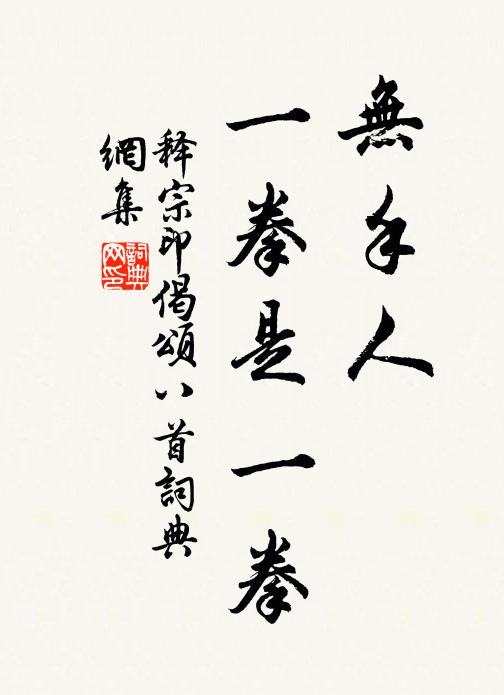 無手人
一拳是一拳
释宗印偈頌八首詞典
網集
詞典
网印